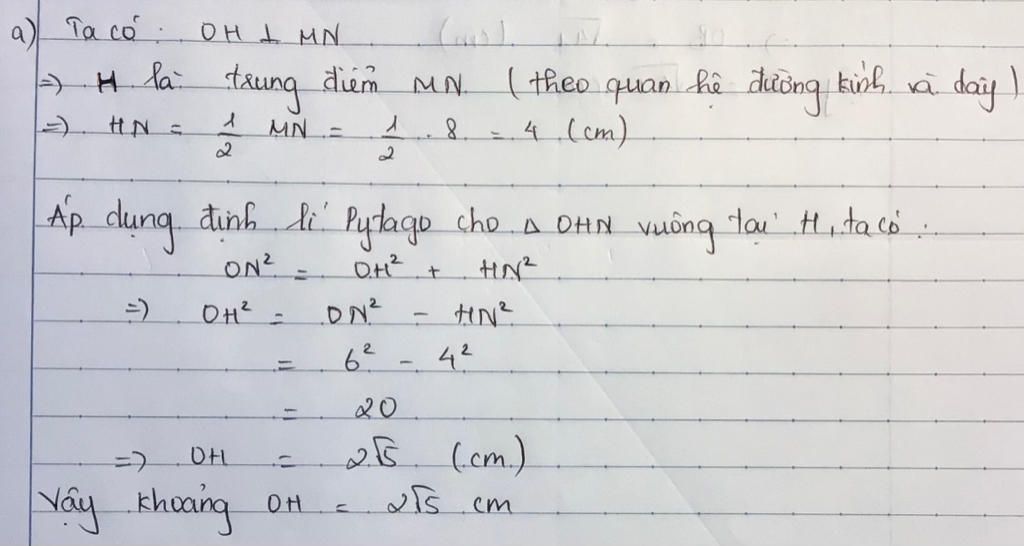 a) Ta có: OH ⊥ MN
=> H là trung điểm MN (theo quan hệ đường kính và dây)
=> HN = 1/2 MN = 1/2 . 8 = 4 (cm)
Áp dụng định lí Pytago cho Δ OHN vuông tại H, ta có:
ON² = OH² + HN²
=> OH² = ON² - HN²
= 6² - 4²
= 20
=> OH = 2√5 (cm)
Vậy khoảng OH = 2√5 cm